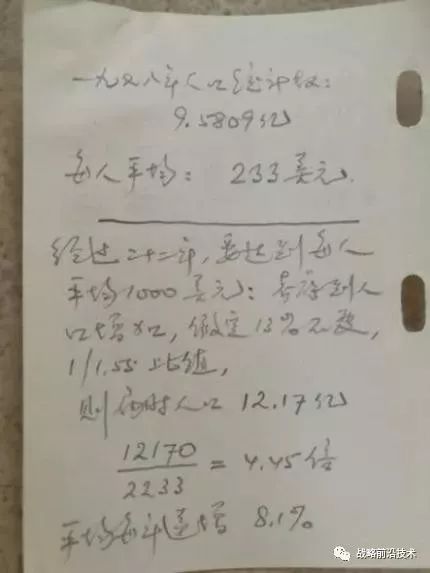 一九七八年人口统计数：
9.5809亿
每人平均： 233美元.
经过二十二年，要达到每人
平均1000美元：考虑到人
口增加，假定13‰不变，
1/1.55 比值，
则届时人口 12.17亿
12170
2233
= 4.45倍
平均每年递增 8.1%
战略前沿技术